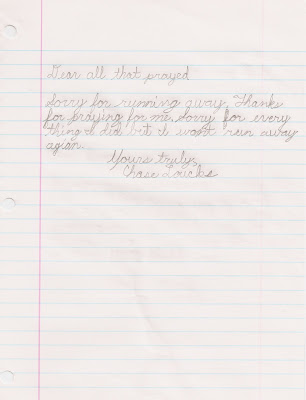 Dear all that prayed
Sorry for running away. Thanks
for praying for me. Sorry for every
thing I did but I wont run away
agian.
Yours truly,
Chase Loucks